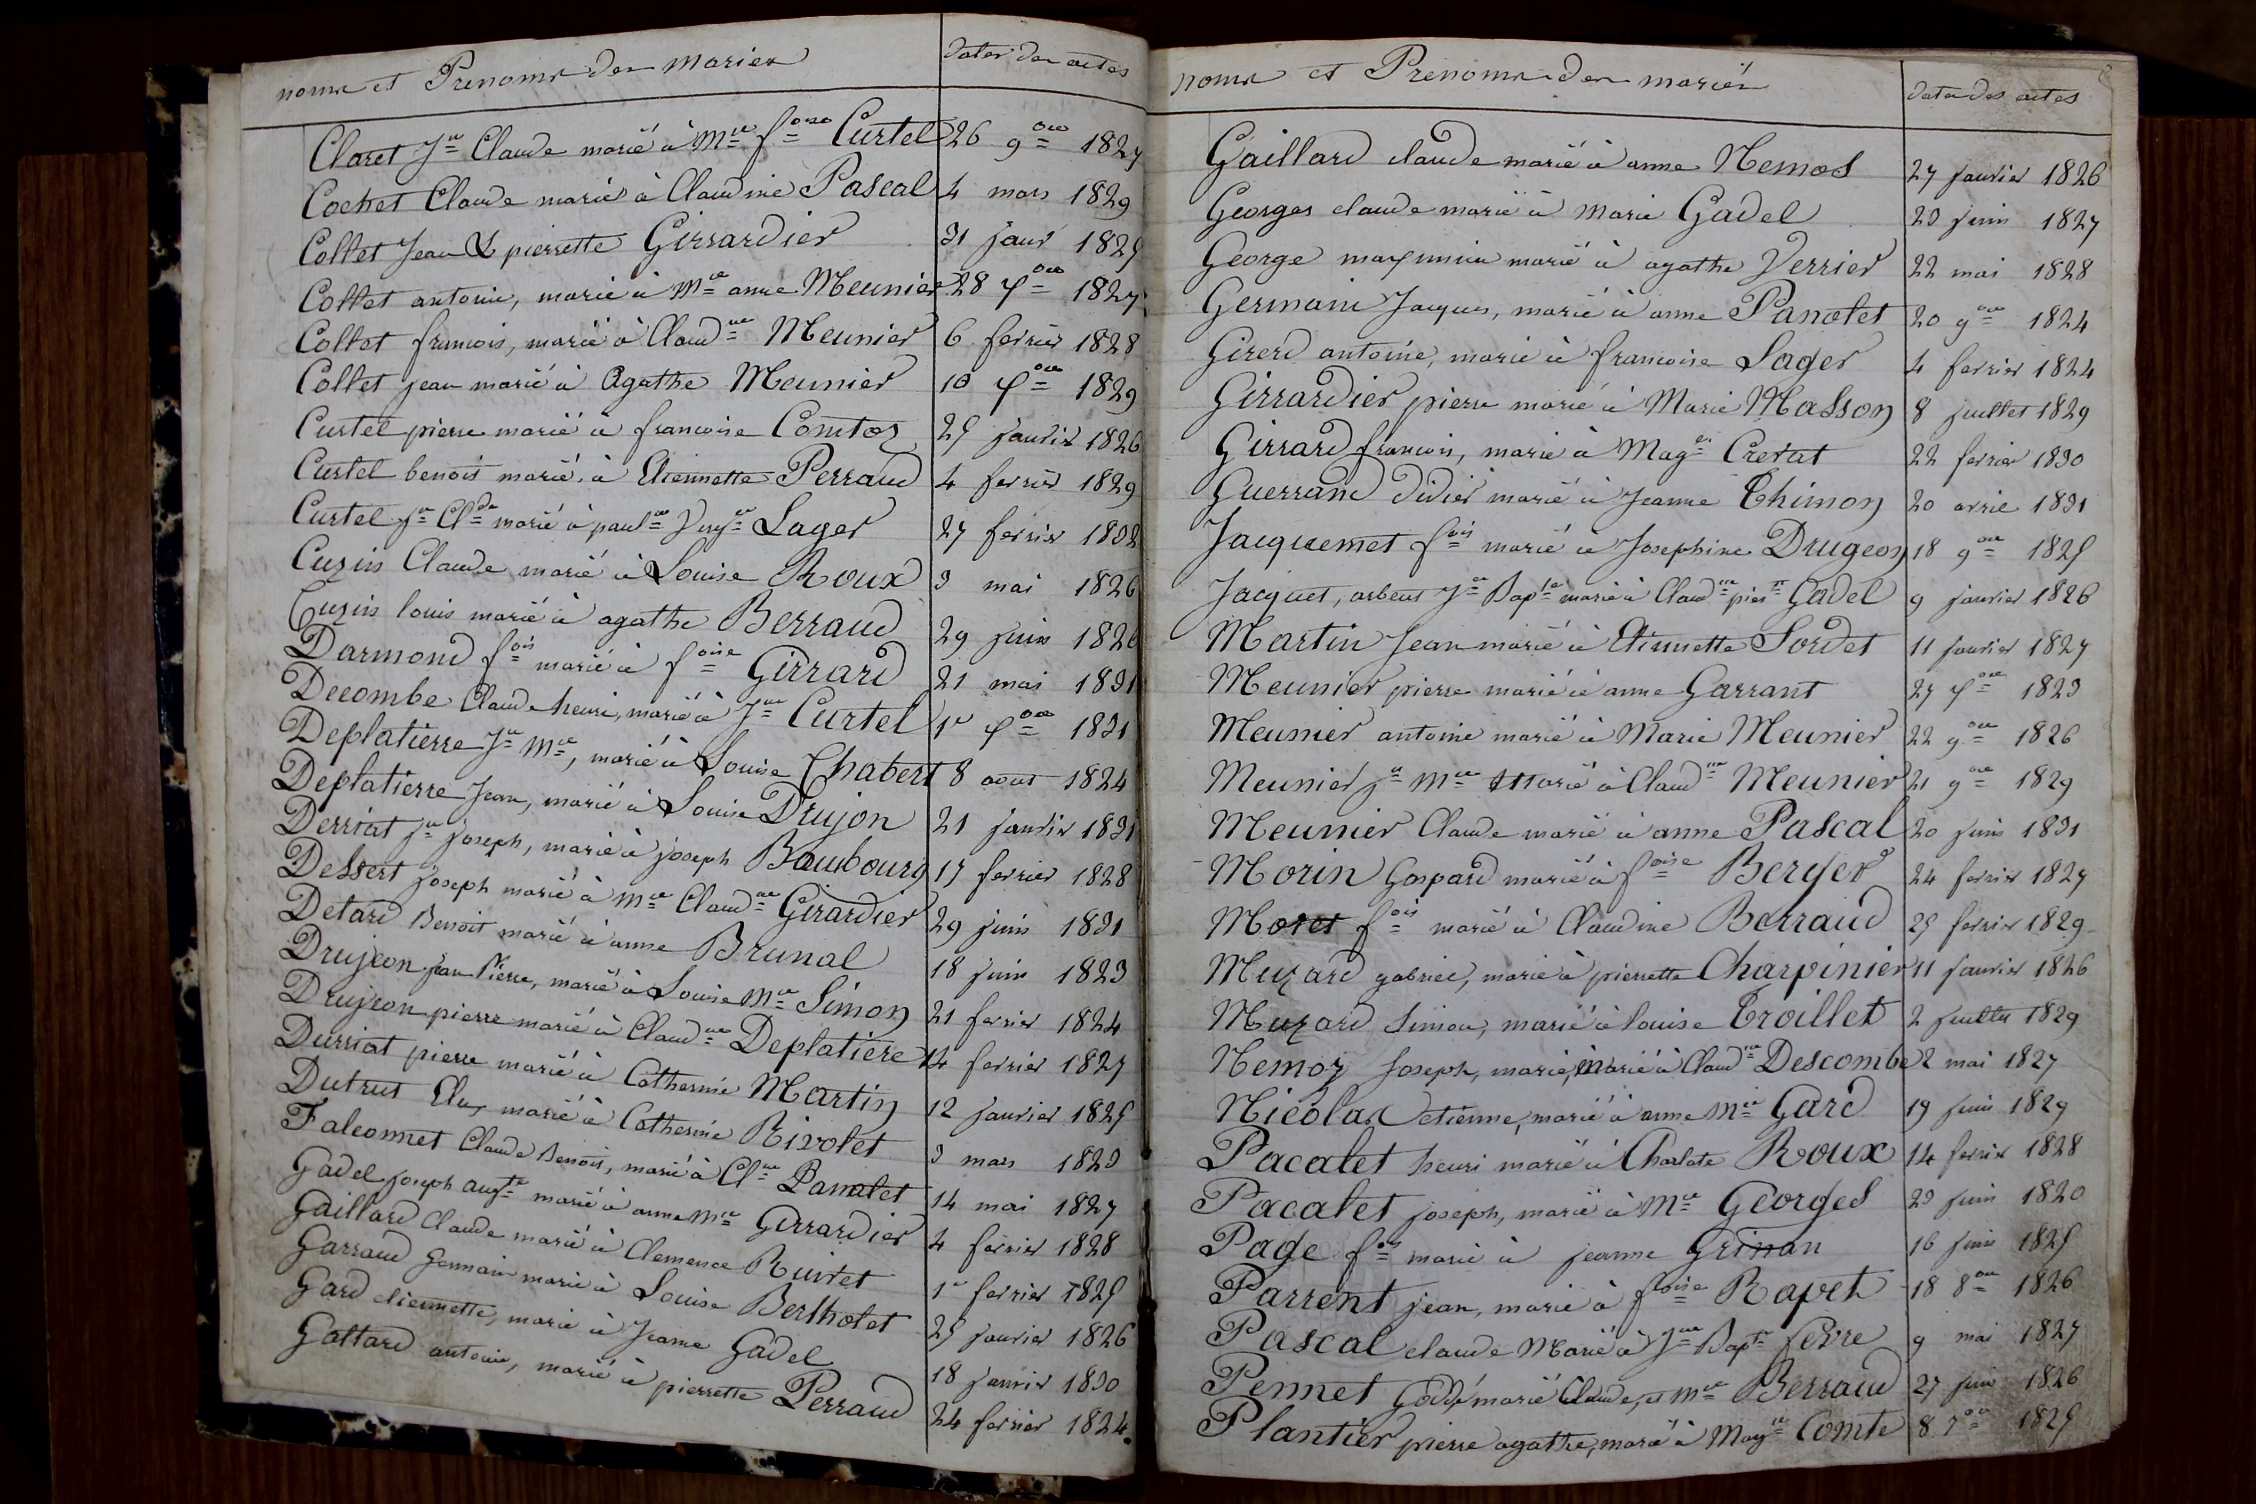 noms et Prenoms des mariés
Dates des actes
Claret Jn Claude marié à Mie foise Curtel 26 9bre 1827
Cochet Claude marié à Claudine Pascal 4 mars 1829
Collet Jean & pierrette Girrardier 31 janv 1825
Collet antoine, marié à Mie anne Meunier 28 Xbre 1827
Collet francois, marié à Claudne Meunier 6 fevrier 1828
Collet jean marié à Agathe Meunier 10 Xbre 1829
Curtel pierre marié à francoise Comtoz 25 janvier 1826
Curtel benoit marié à Etiennette Perraud 4 fevrier 1829
Curtel Jn Clde marié à paulne Lager 27 fevrier 1832
Cuzin Claude marié à Louise Roux 3 mai 1826
Cuzin louis marié à agathe Berraud 29 juin 1826
Darmond fois marié à foise Girrard 21 mai 1831
Decombe Claude henri, marié à Jne Curtel 1er Xbre 1831
Deplatierre Jn Mie, marié à Louise Chabert 8 aout 1824
Deplatierre Jean, marié à Louise Drujon 21 janvier 1831
Derriat jn joseph, marié à joseph Baubourg 17 fevrier 1828
Dessert joseph marié à Mie Claudne Girardier 29 juin 1831
Detard Benoit marié à anne Brunal 18 juin 1823
Drujeon jean Pierre, marié à Louise Mie Simon 21 fevrier 1824
Drujeon pierre marié à Claudne Deplatière 14 fevrier 1827
Durriat pierre marié à Catherine Martin 12 janvier 1825
Dutrut marié à Catherine Rivolet 3 mars 1823
Falconnet Claude Benoit, marié à Clne Panalet 14 mai 1827
Gadel joseph augte marié à anne Mie Girrardier 4 fevrier 1828
Gaillard Claude marié à Clemence Ruivet 1er fevrier 1825
Garraud Germain marié à Louise Bertholet 25 janvier 1826
Gard etiennette, marié à Jeanne Gadel 18 janvier 1830
Gattard antoine, marié à pierrette Perraud 24 fevrier 1824
noms et Prenoms des mariés
dates des actes
Gaillard claude marié à anne Nemos 27 janvier 1826
Georges claude marié à Marie Gadel 23 juin 1827
George maximin marié à agathe Verrier 22 mai 1828
Germain Jacques, marié à anne Panotet 20 9bre 1824
Girerd antoine, marié à francoise Lager 4 fevrier 1824
Girrardier pierre marié à Marie Masson 8 juillet 1829
Girrard francois, marié à Magne Cretat 22 fevrier 1830
Guerrand Didier marié à Jeanne Thimon 20 avril 1831
Jacquemet fois marié à Josephine Drugeon 18 9bre 1825
Jacquet, arbeut Jn Bapte marié à Claudne pierte Gadel 9 janvier 1826
Martin Jean marié à Etiennette Sordet 11 janvier 1827
Meunier pierre marié à anne Garrant 27 Xbre 1823
Meunier antoine marié à Marie Meunier 22 9bre 1826
Meunier jn Mie Marié à Claudne Meunier 21 9bre 1829
Meunier Claude marié à anne Pascal 20 juin 1831
Morin Gaspard marié à foise Berger 24 fevrier 1827
Moret fois marié à Claudine Berraud 25 fevrier 1829
Muzard gabriel, marié à pierrette Charpinier 11 janvier 1826
Muzard Simon, marié à louise Troillet 2 juillet 1829
Nemoz Joseph, marié, Marié à Claudne Descombe 2 mai 1827
Nicolas etienne, marié à anne Mie Gard 19 juin 1829
Pacalet henri marié à Charlote Roux 14 fevrier 1828
Pacalet joseph, marié à Mie Georges 23 juin 1820
Page fois marié à jeanne Grinan 16 juin 1825
Parrent jean, marié à foise Rapet 18 8bre 1826
Pascal claude Marié à Jne Bapte fevre 9 mai 1827
Pennet marié Claude, et Mie Berraud 27 juin 1826
Plantier pierre agathe, marié à Magne Comte 8 7bre 1825